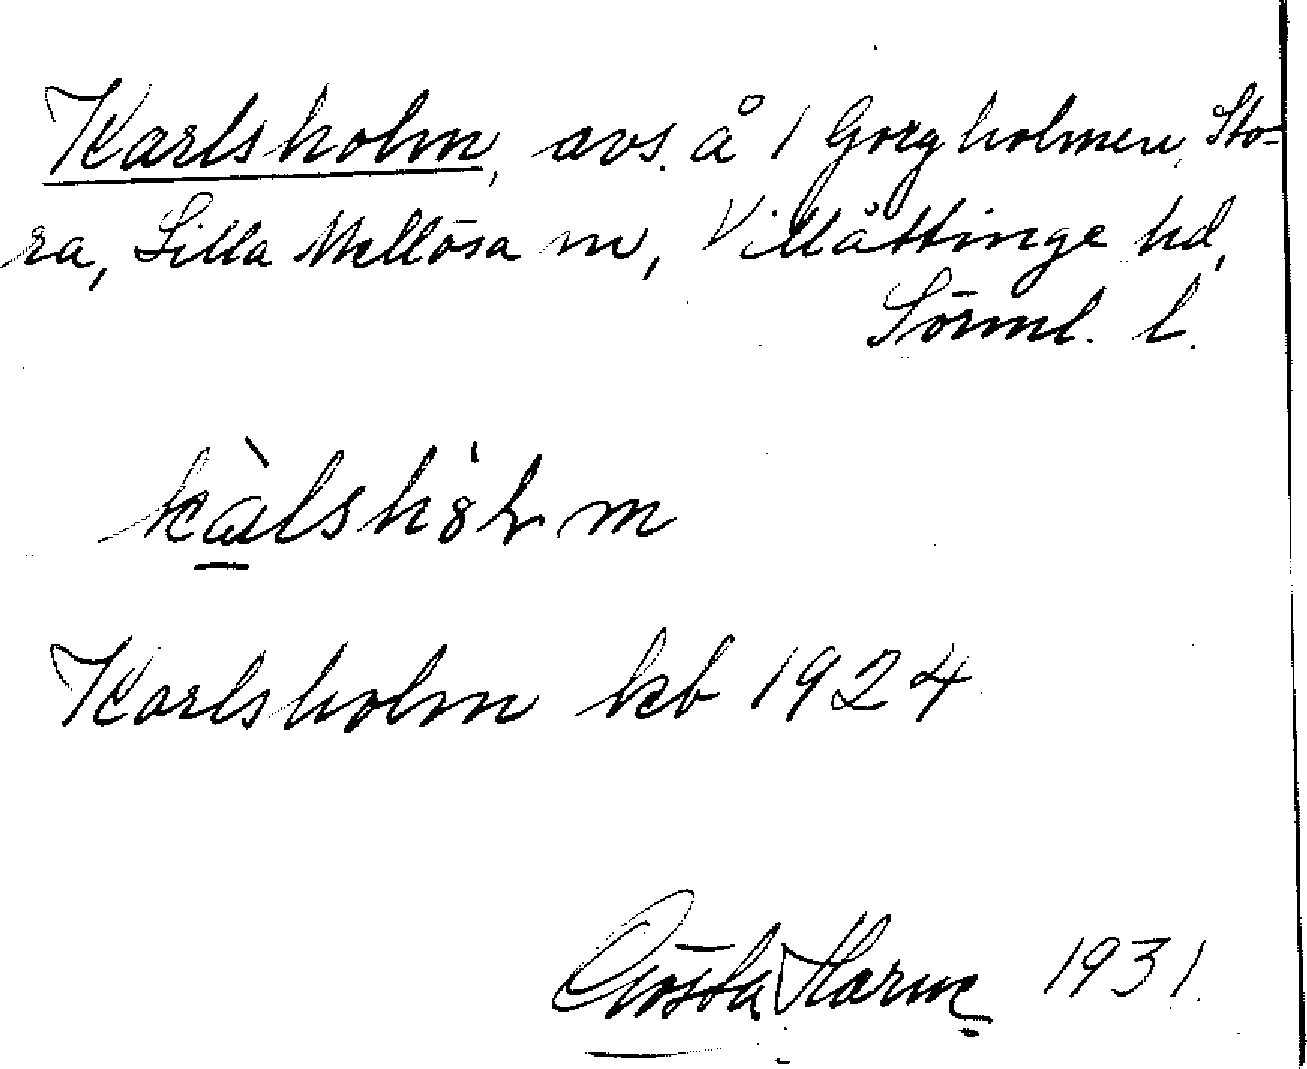 Karlsholm, avs. å 1 Gorgholmen, Sto-
ra, Lilla Mellösa sn, Villåttinge hd,
Sörml. l.
kàlshòlm
Karlsholm kb 1924
Gösta 1931